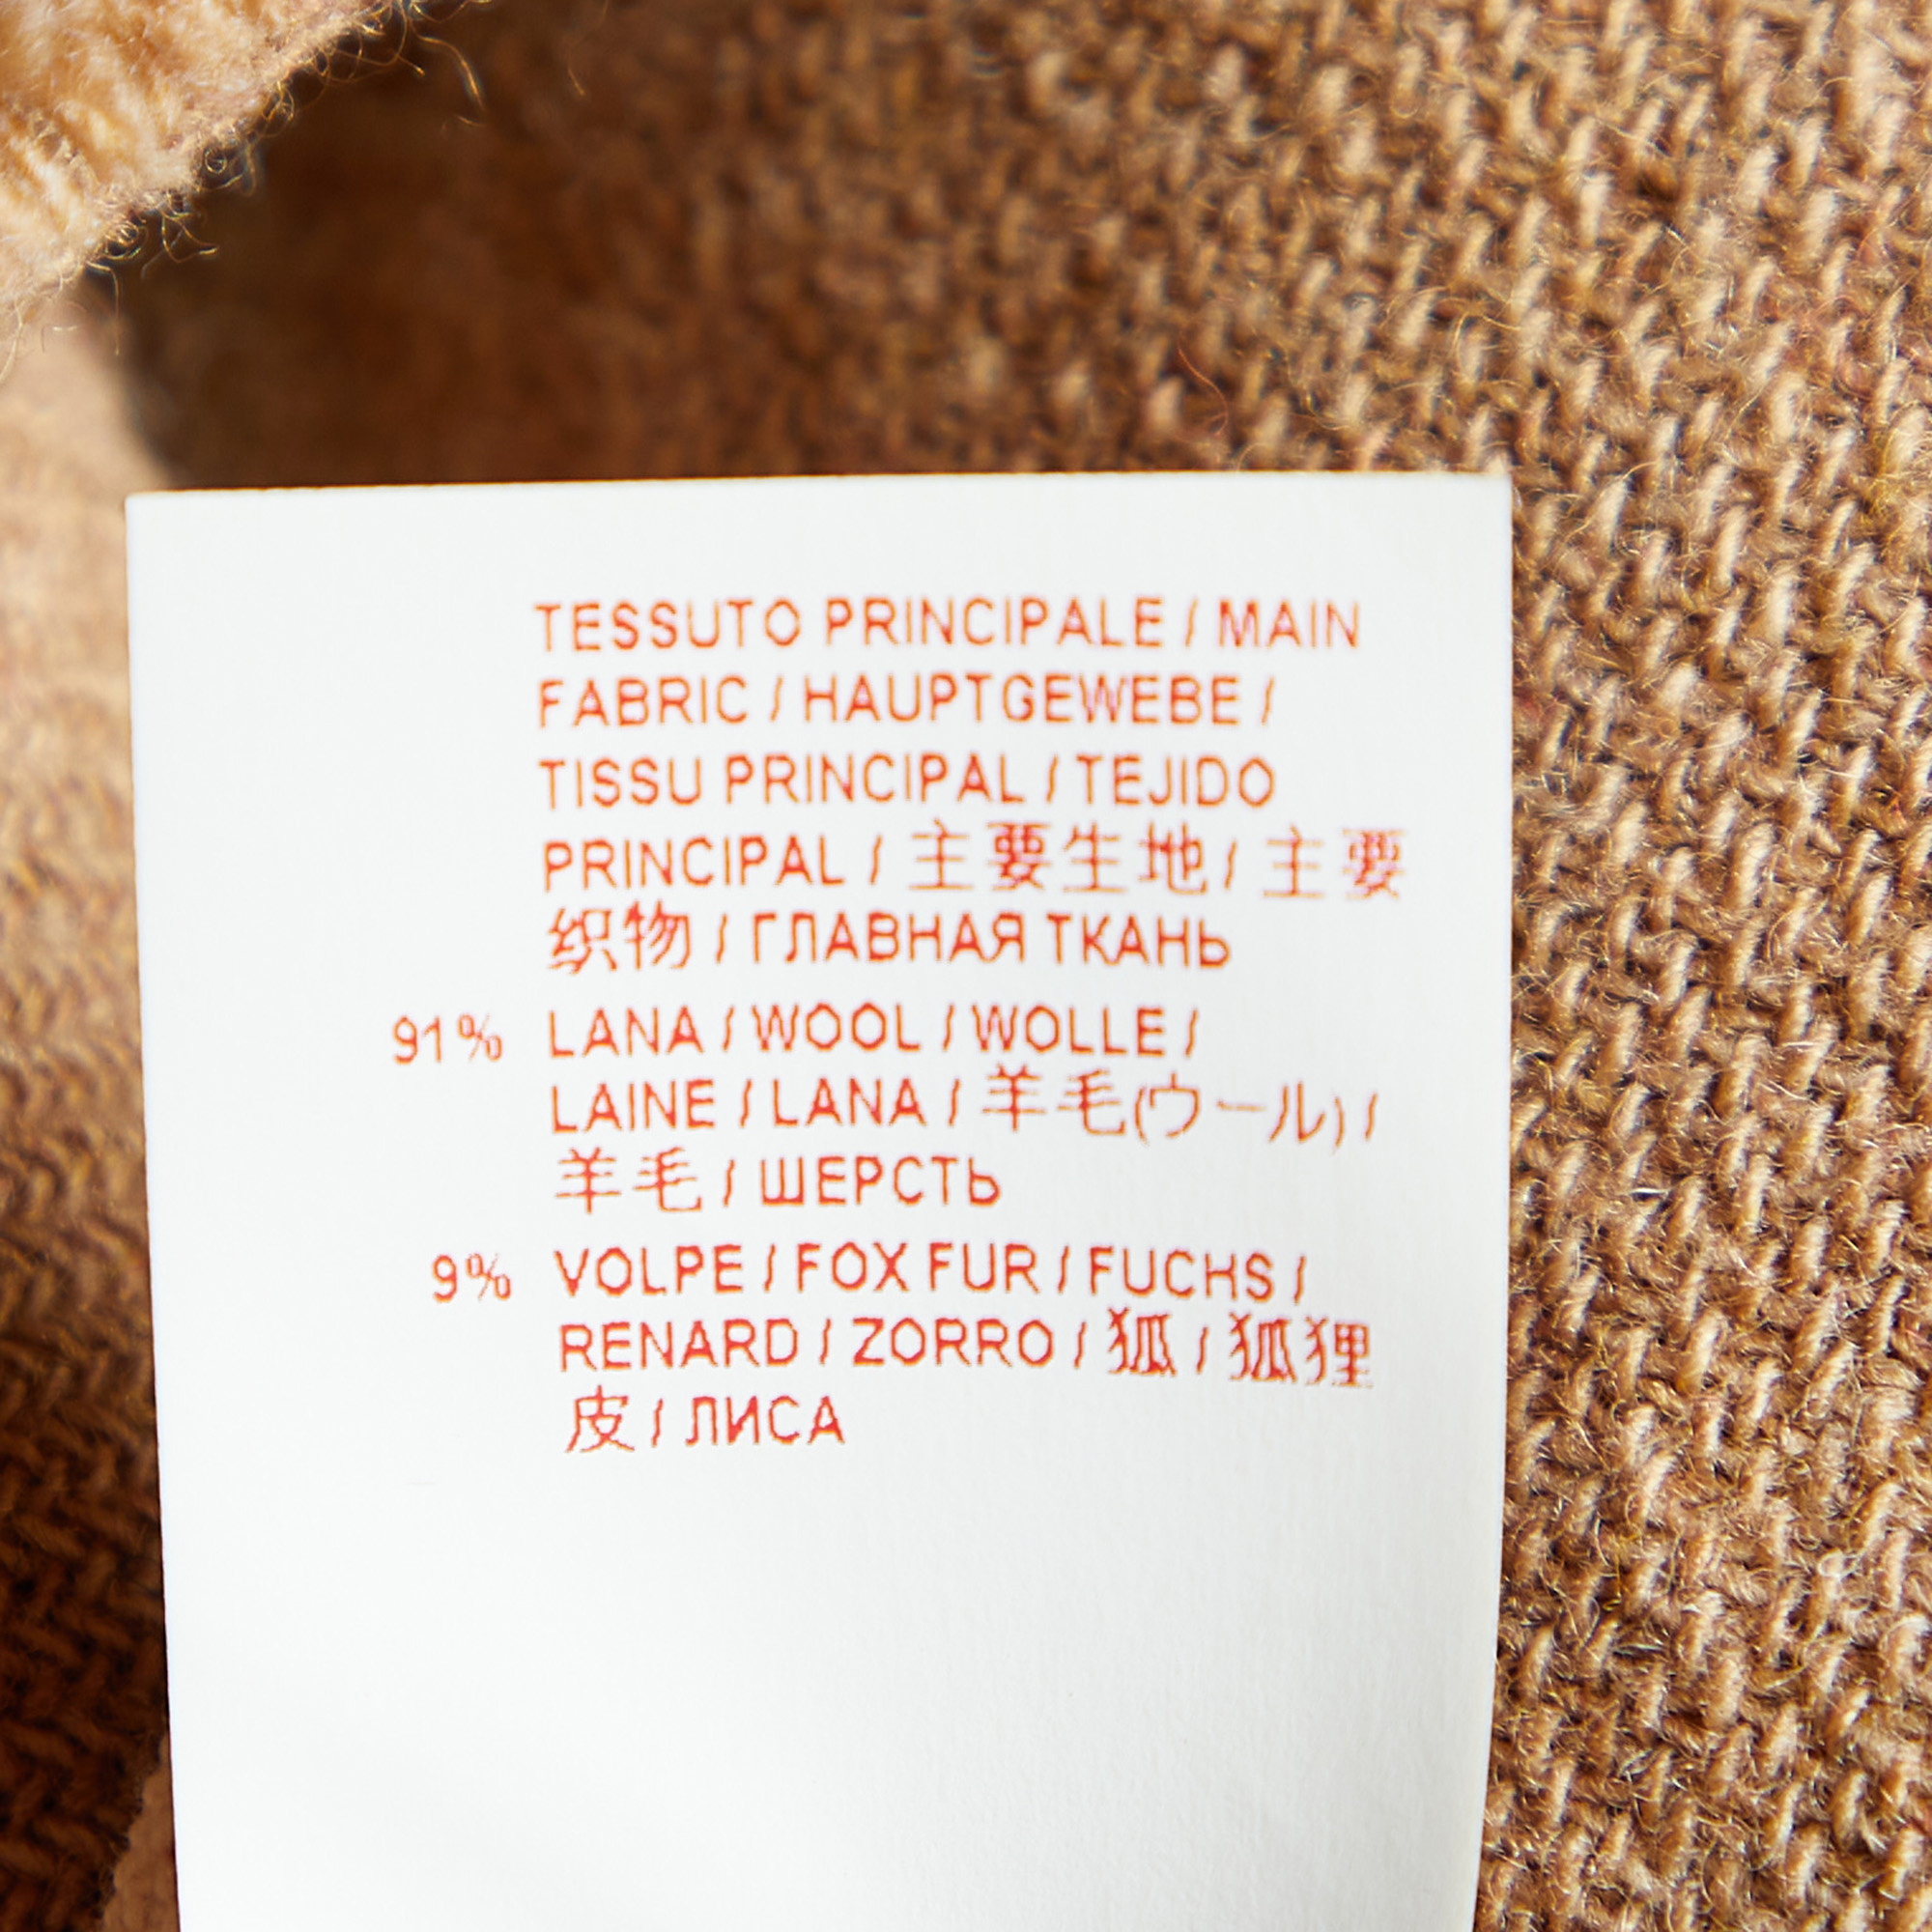 TESSUTO PRINCIPALE / MAIN
FABRIC / HAUPTGEWEBE /
TISSU PRINCIPAL / TEJIDO
PRINCIPAL / 主要生地 / 主要
织物 / ГЛАВНАЯ ТКАНЬ
91% LANA / WOOL / WOLLE /
LAINE / LANA / 羊毛(ウール) /
羊毛 / ШЕРСТЬ
9% VOLPE / FOX FUR / FUCHS /
RENARD / ZORRO / 狐 / 狐狸
皮 / ЛИСА